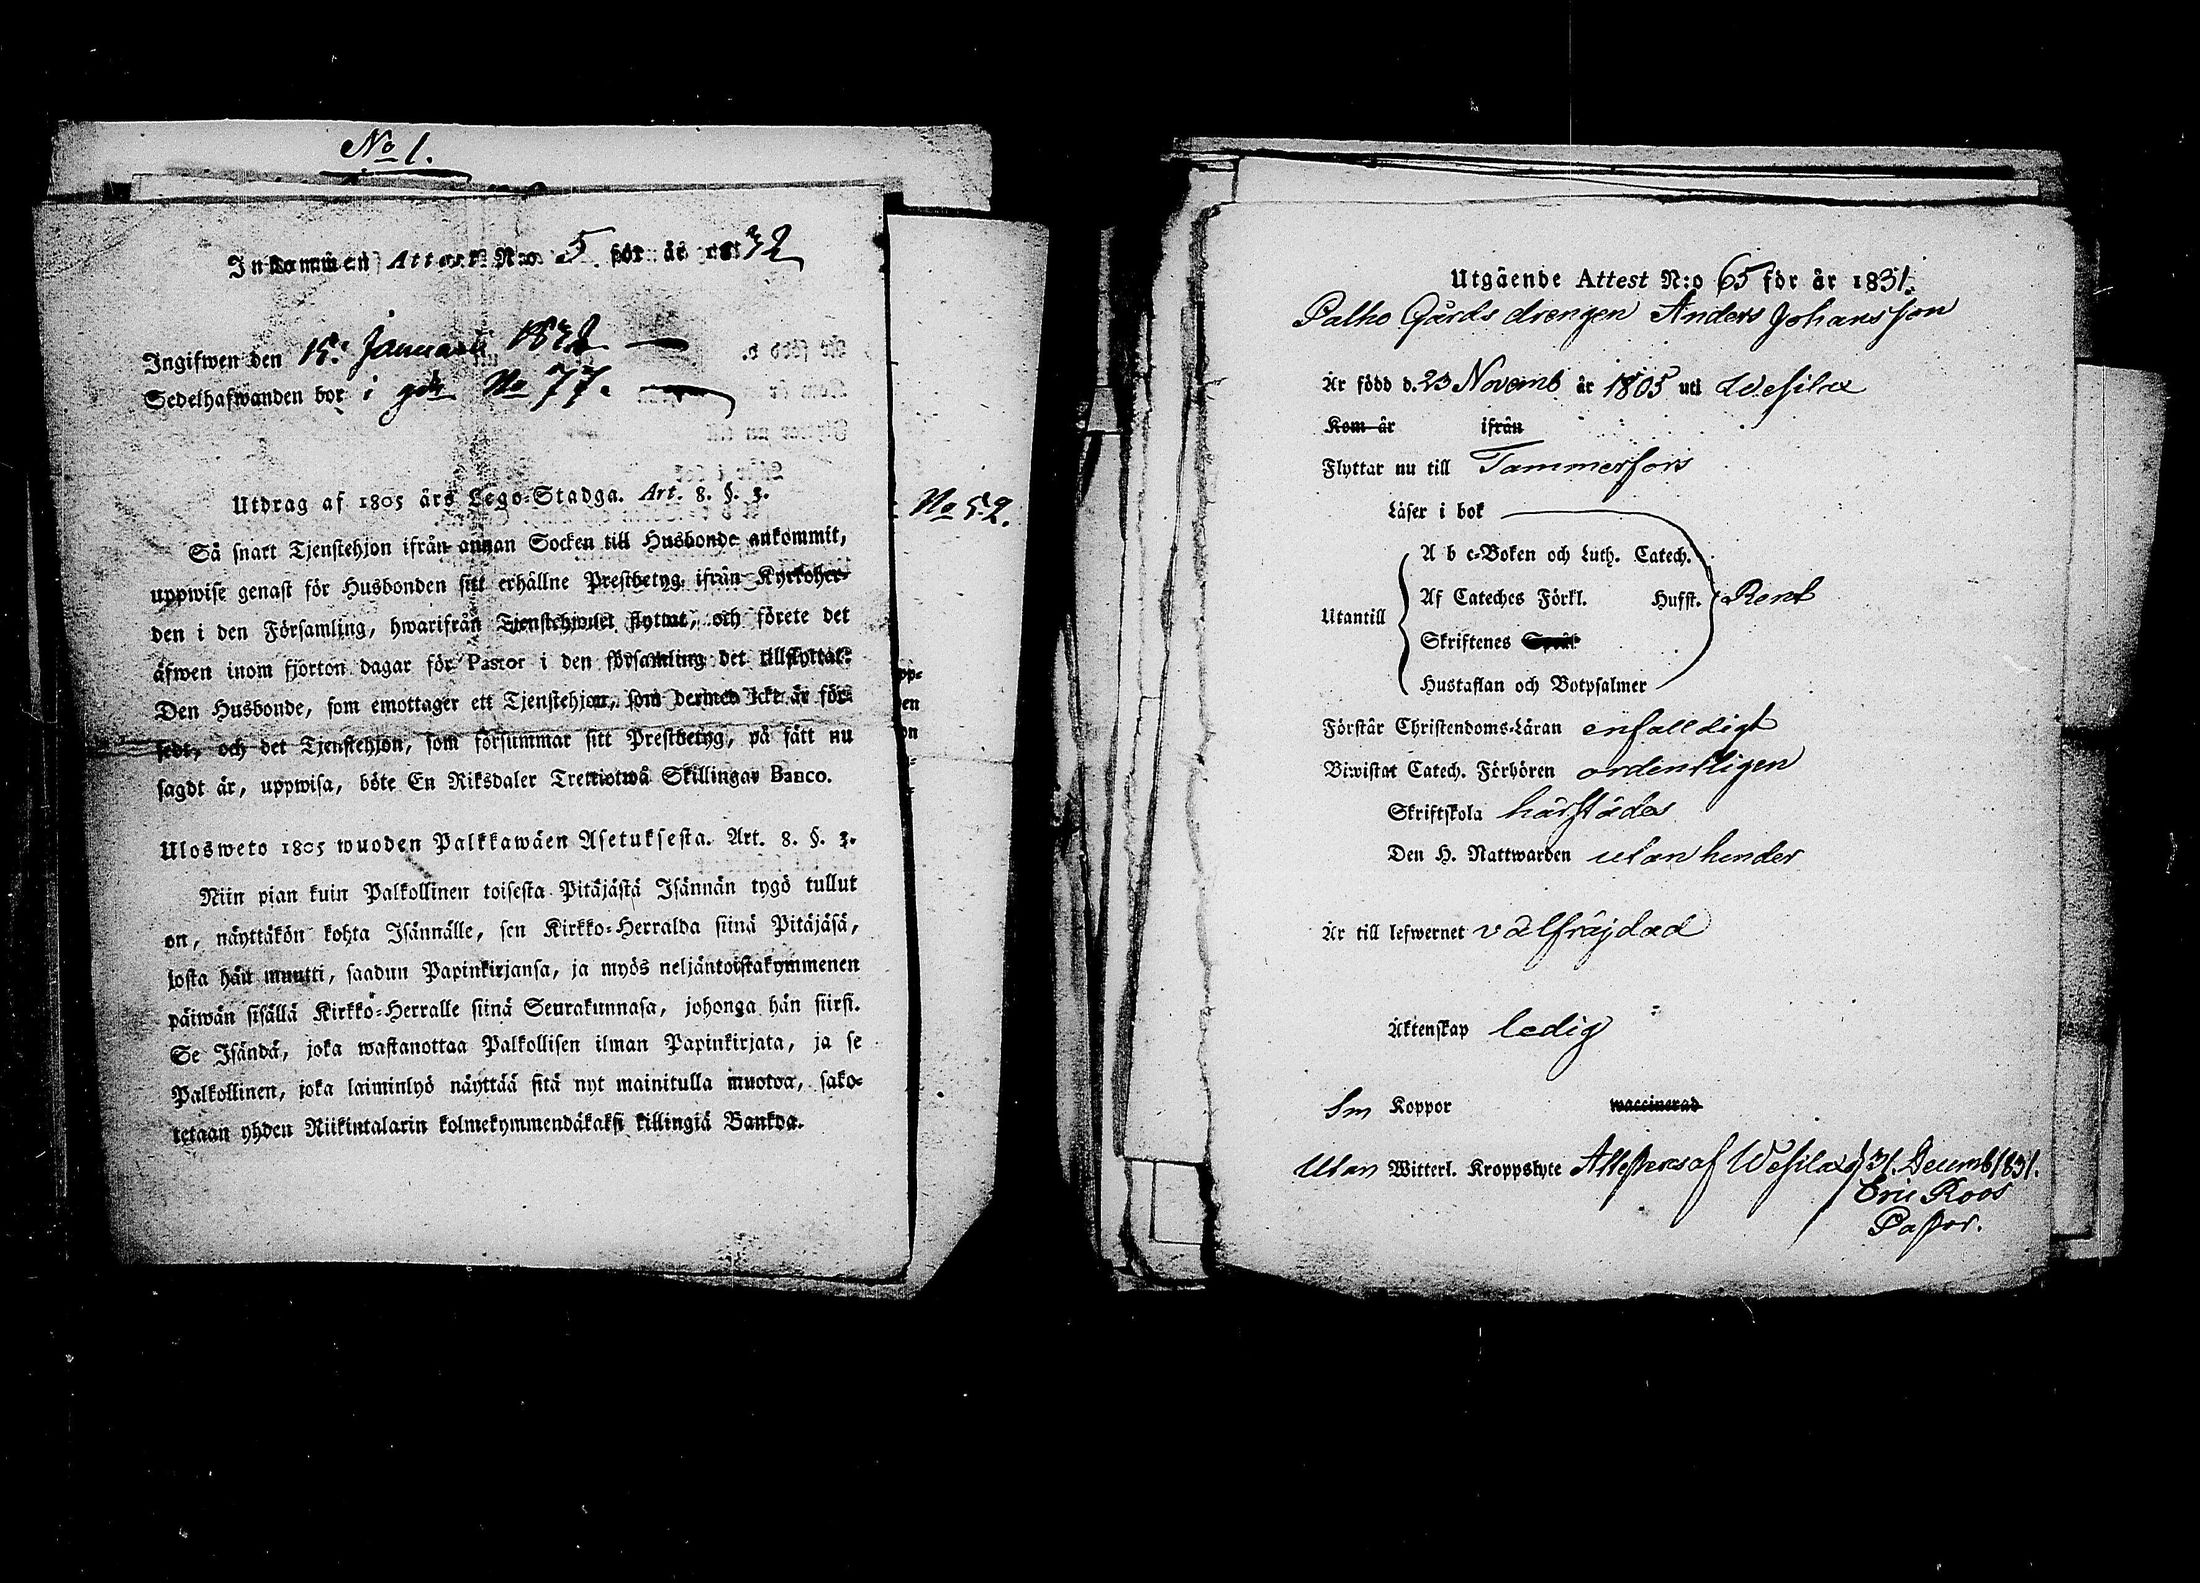 No 1.
Inkommen Attest N:o 5 för år 1832
Ingifwen den 15. Januarii 1832
Sedelhafwanden bor i gdn No 77.
Utdrag af 1805 års Lego-Stadga. Art. 8. §. 3.
Så snart Tjenstehjon ifrån annan Socken till Husbonde ankommit,
uppwise genast för Husbonden sitt erhållne Prestbetyg ifrån Kyrkoher-
den i den Församling, hwarifrån Tjenstehjonet flyttat, och förete det
äfwen inom fjorton dagar för Pastor i den församling det tillflyttat.
Den Husbonde, som emottager ett Tjenstehjon, som dermed icke är för-
sedt, och det Tjenstehjon, som försummar sitt Prestbetyg, på sätt nu
sagdt är, uppwisa, böte En Riksdaler Trettiotwå Skillingar Banco.
Ulosweto 1805 wuoden Palkkawäen Asetuksesta. Art. 8. §. 3.
Niin pian kuin Palkollinen toisesta Pitäjästä Isännän tygö tullut
on, näyttäkön kohta Isännälle, sen Kirkko-Herralda siinä Pitäjäsä,
josta hän muutti, saadun Papinkirjansa, ja myös neljäntoistakymmenen
päiwän sisällä Kirkko-Herralle siinä Seurakunnasa, johonga hän siirsi.
Se Isändä, joka wastanottaa Palkollisen ilman Papinkirjata, ja se
Palkollinen, joka laiminlyö näyttää sitä nyt mainitulla muotoa, sako-
tetaan yhden Riikintalarin kolmekymmendäkaksi killingiä Bankoa.
No 52.
Utgående Attest N:o 65 för år 1831.
Palho Gårds drengen Anders Johansson
Är född d. 23 Novemb år 1805 uti Wesilax
Kom år ifrån
Flyttar nu till Tammerfors
Läser i bok
A b c-Boken och Luth. Catech.
Utantill Af Cateches Förkl. Hufst. Rent
Skriftenes Språk
Hustaflan och Botpsalmer
Förstår Christendoms-Läran enfalldigt
Biwistat Catech. Förhören ordentligen
Skriftskola härstädes
Den H. Nattwarden utan hinder
Är till lefwernet välfräjdad
Äktenskap ledig
Koppor waccinerad
Utan Witterl. Kroppslyte Attesteras af Wesilax d 31. Decemb 1831.
Eric Roos
Pastor.